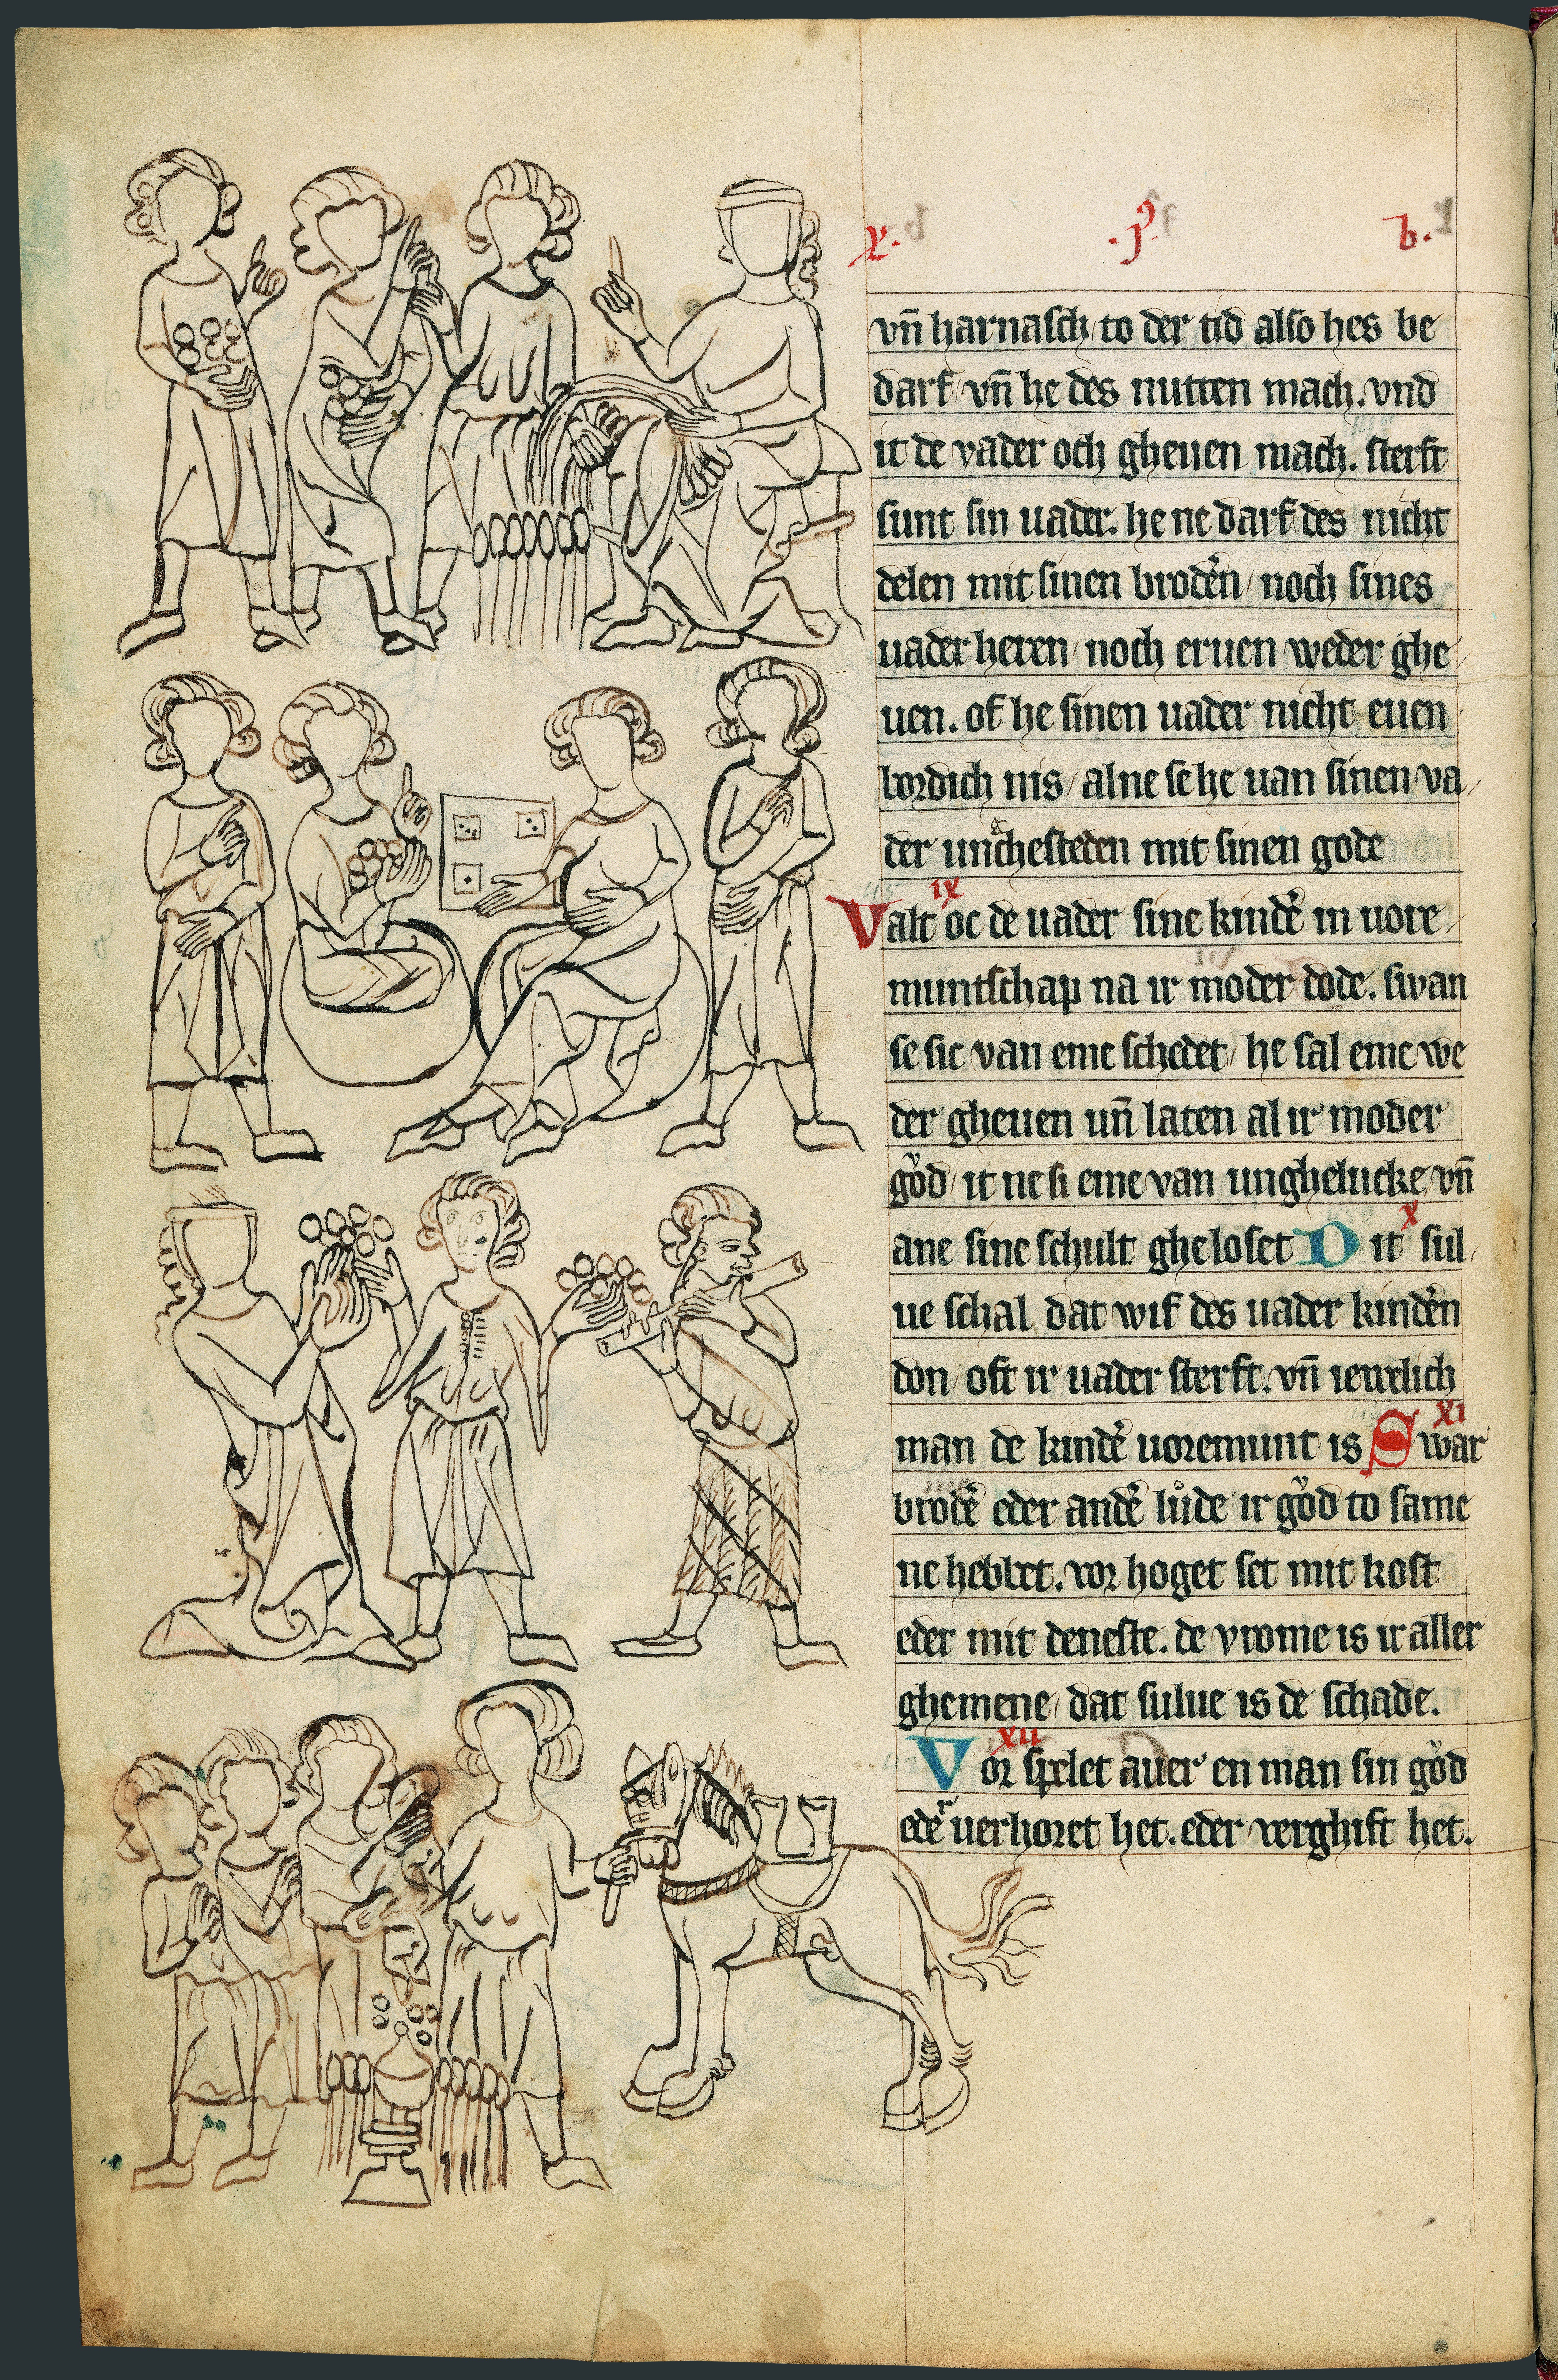 x. .j. b.
vn̄ harnasch/ to der tid also hes be
darf/ vn̄ he des nutten mach. vnd
it de vader och gheuen mach. sterft
sunt sin uader. he ne darf des nicht
delen mit sinen brodern̄/ noch sines
uader heren/ noch eruen weder ghe/
uen. of he sinen uader nicht euen
bordich nis/ alne se he uan sinen va/
der uncͣhesteden mit sinen gode
IX
Valt oc de uader sine kinde᷎ in uore/
muntschap na ir moder dode. swan
se sic van eme schedet/ he sal eme we
der gheuen un̄ laten al ir moder
gͦod/ it ne si eme van unghelucke/ vn̄
X
ane sine schult gheloset Dit sul/
ue schal dat wif des uader kinde᷎n
don/ oft ir uader sterft. vn̄ iewelich
XI
man de kinde᷎ uoremunt is Swar
brode᷎ eder ande᷎ lůde ir gͦod to same
ne hebbet. vor hoget set mit kost
eder mit deneste. de vrome is ir aller
ghemene/ dat sulue is de schade.
XII
Vor spelet auer en man sin gͦod
ede᷎ uerhoret het. eder verghift het.
46
47
48